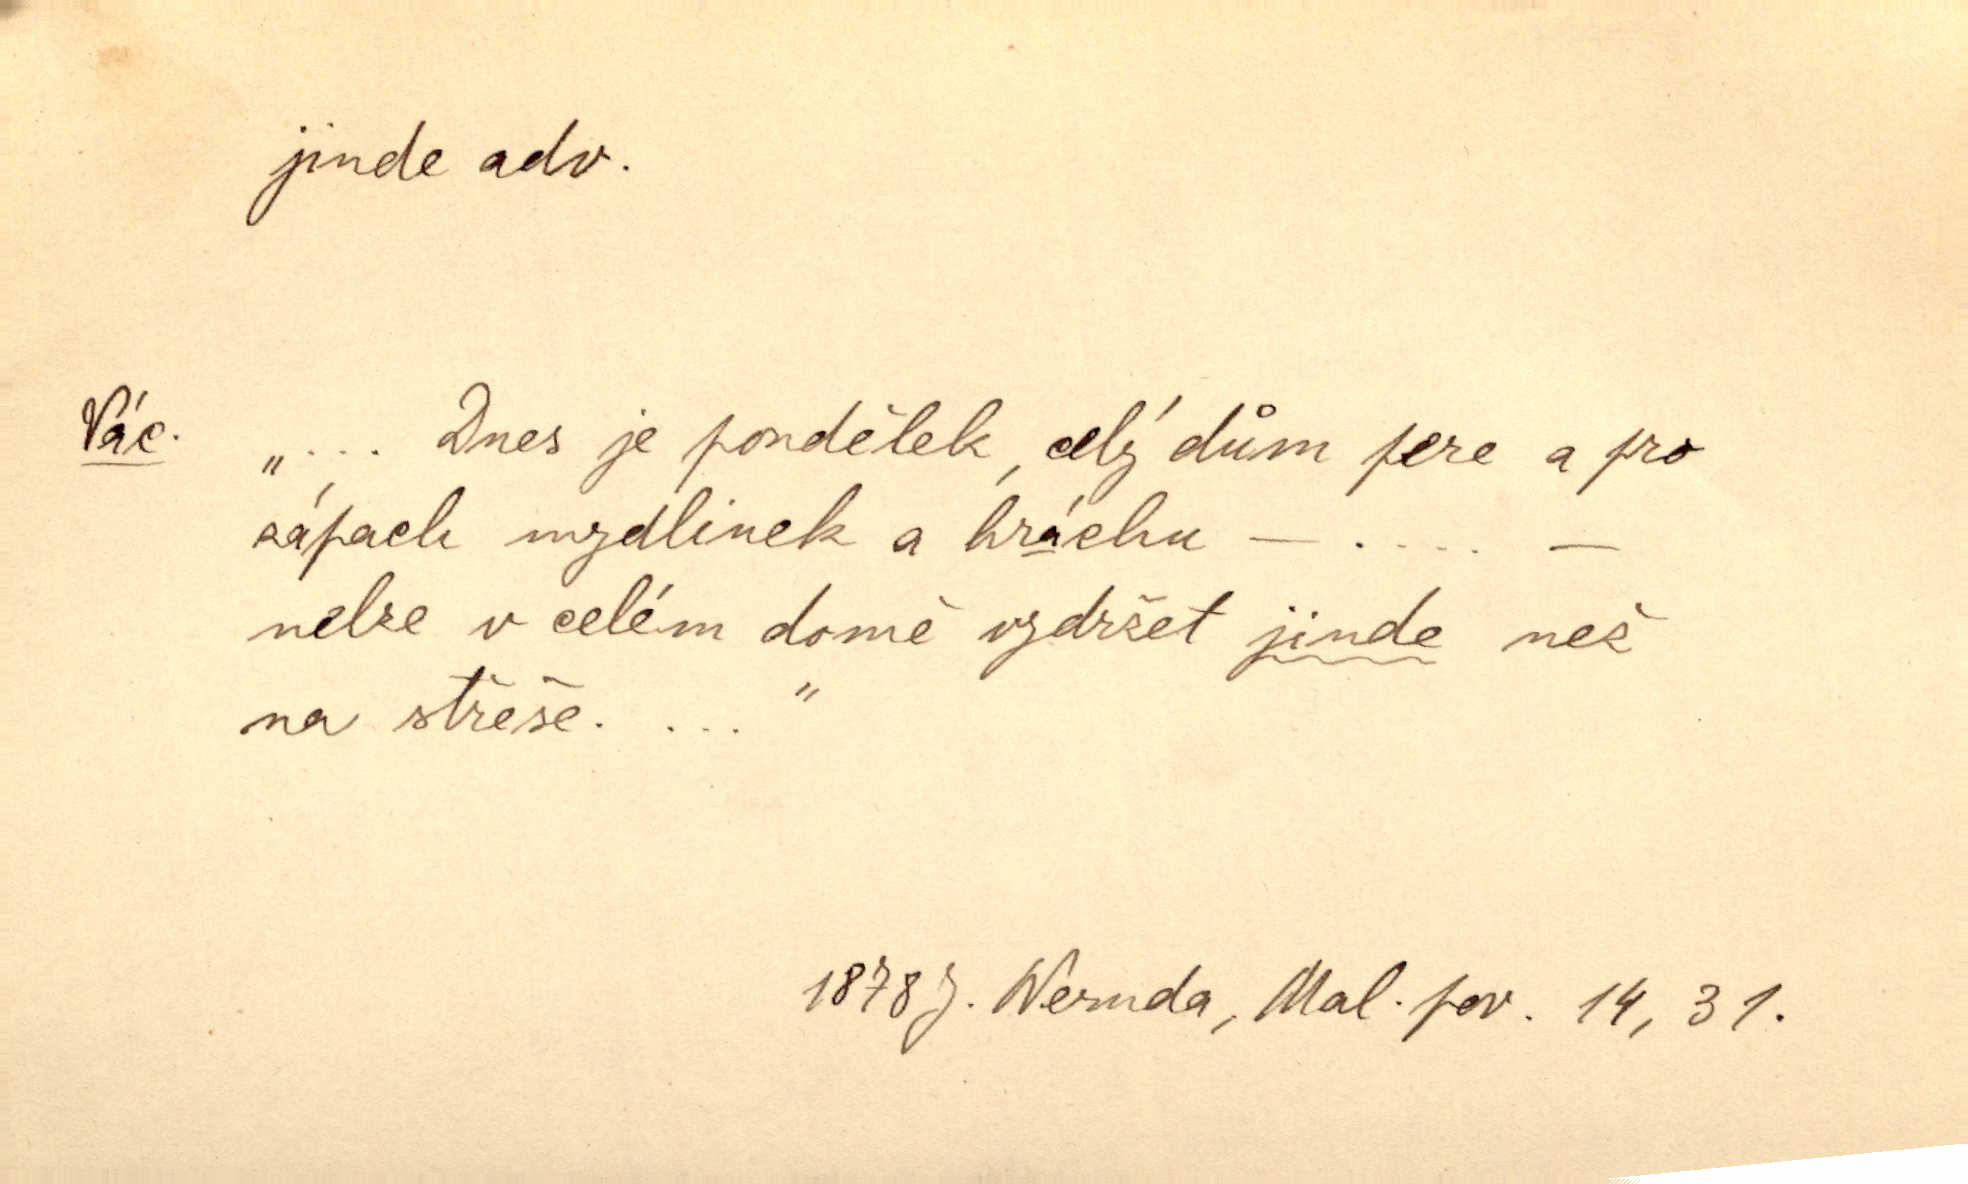 jinde adv.
Vác. „.... Dnes je pondělek, celý dům pere a pro
zápach mydlinek a hráchu — ..... —
nelze v celém domě vydržet jinde než
na střeše. ...."
1878 J. Neruda, Mal. pov. 14, 31.